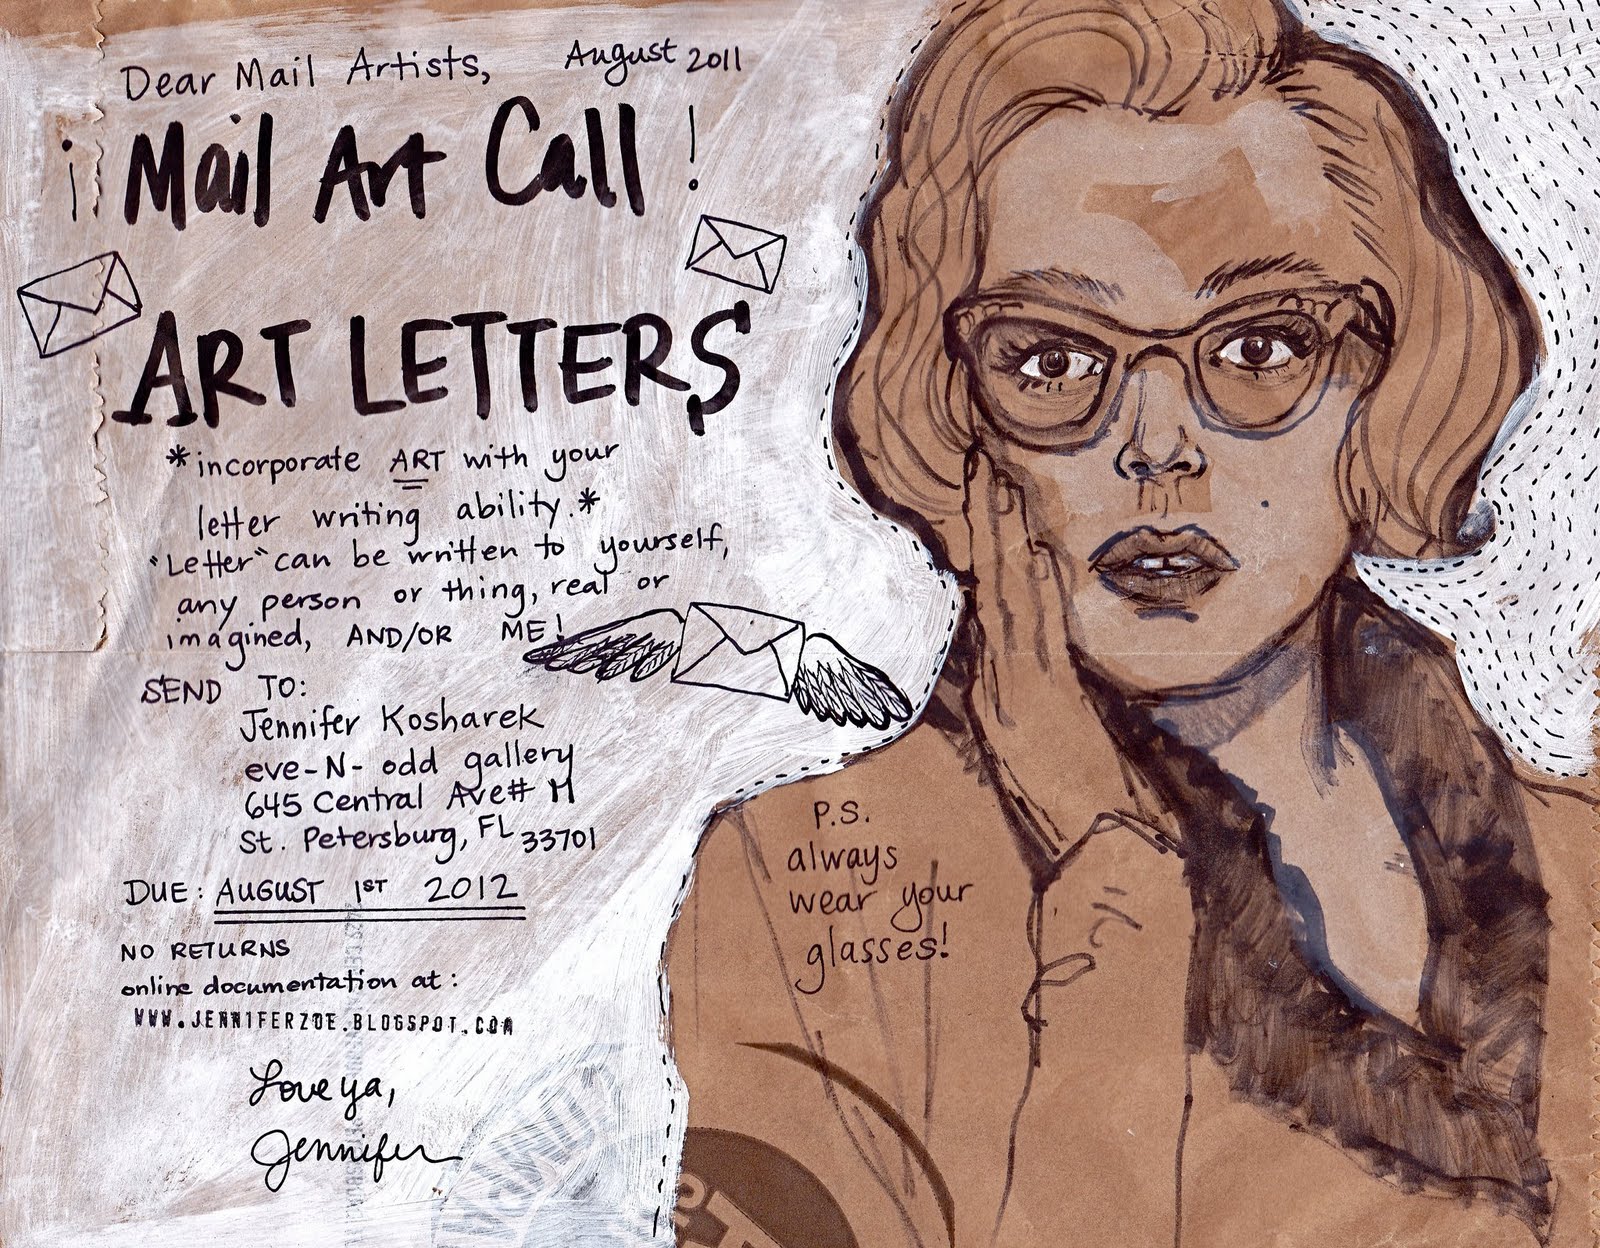 Dear Mail Artists, August 2011
¡Mail Art Call!
ART LETTERS
*incorporate ART with your
letter writing ability.*
"Letter" can be written to yourself,
any person or thing, real or
imagined, AND/OR ME!
SEND TO:
Jennifer Kosharek
eve-N-odd gallery
645 Central Ave# M
St. Petersburg, FL 33701
DUE: AUGUST 1ST 2012
NO RETURNS
online documentation at:
WWW.JENNIFERZOE.BLOGSPOT.COM
Love ya,
Jennifer
P.S.
always
wear your
glasses!